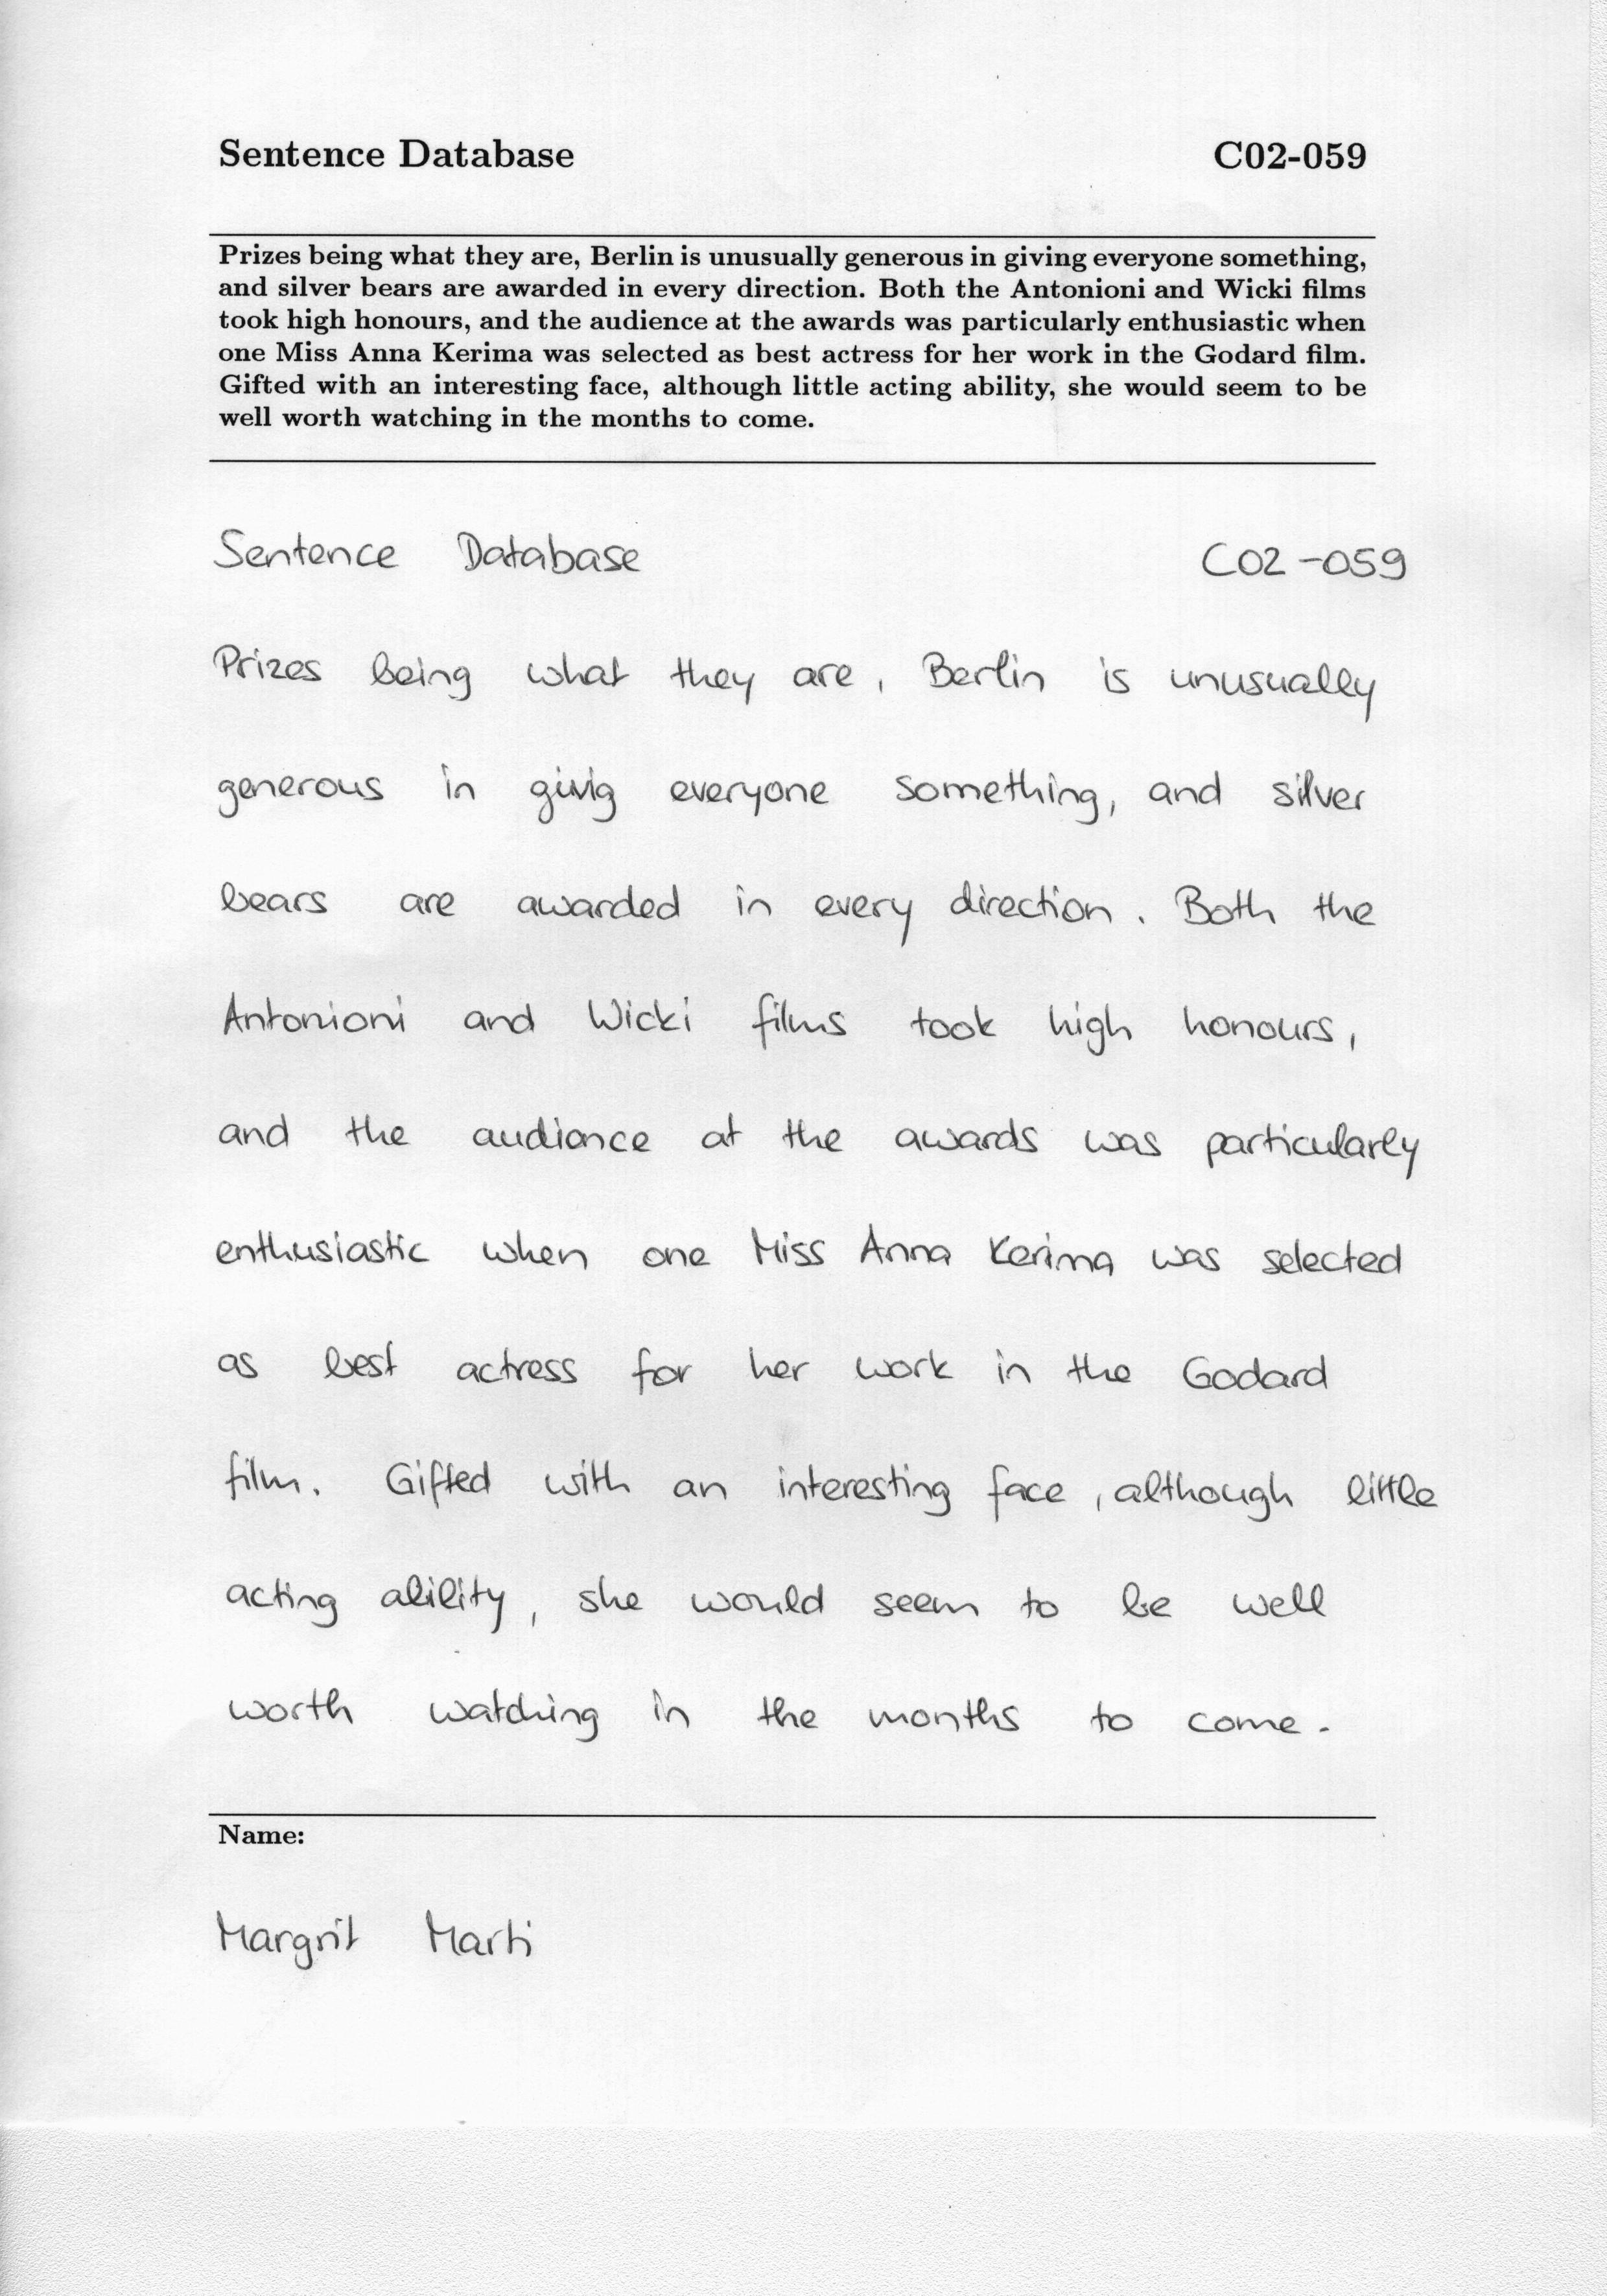 Sentence Database C02-059
Prizes being what they are, Berlin is unusually generous in giving everyone something,
and silver bears are awarded in every direction. Both the Antonioni and Wicki films
took high honours, and the audience at the awards was particularly enthusiastic when
one Miss Anna Kerima was selected as best actress for her work in the Godard film.
Gifted with an interesting face, although little acting ability, she would seem to be
well worth watching in the months to come.
Sentence Database C02-059
Prizes being what they are, Berlin is unusually
generous in givig everyone something, and silver
bears are awarded in every direction. Both the
Antonioni and Wicki films took high honours,
and the audience at the awards was particularly
enthusiastic when one Miss Anna Kerima was selected
as best actress for her work in the Godard
film. Gifted with an interesting face, although little
acting ability, she would seem to be well
worth watching in the months to come.
Name:
Margrit Marti